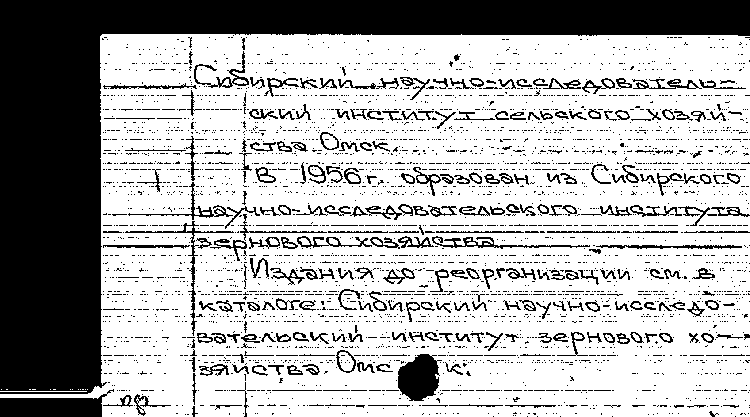 Сибирский научно-исследователь-
ский институт сельского хозяй-
ства. Омск.
В 1956 г. образован из Сибирского
научно-исследовательского института
зернового хозяйства.
Издания до реорганизации см. в
каталоге: Сибирский научно-исследо-
вательский институт зернового хо-
зяйства. Омск.